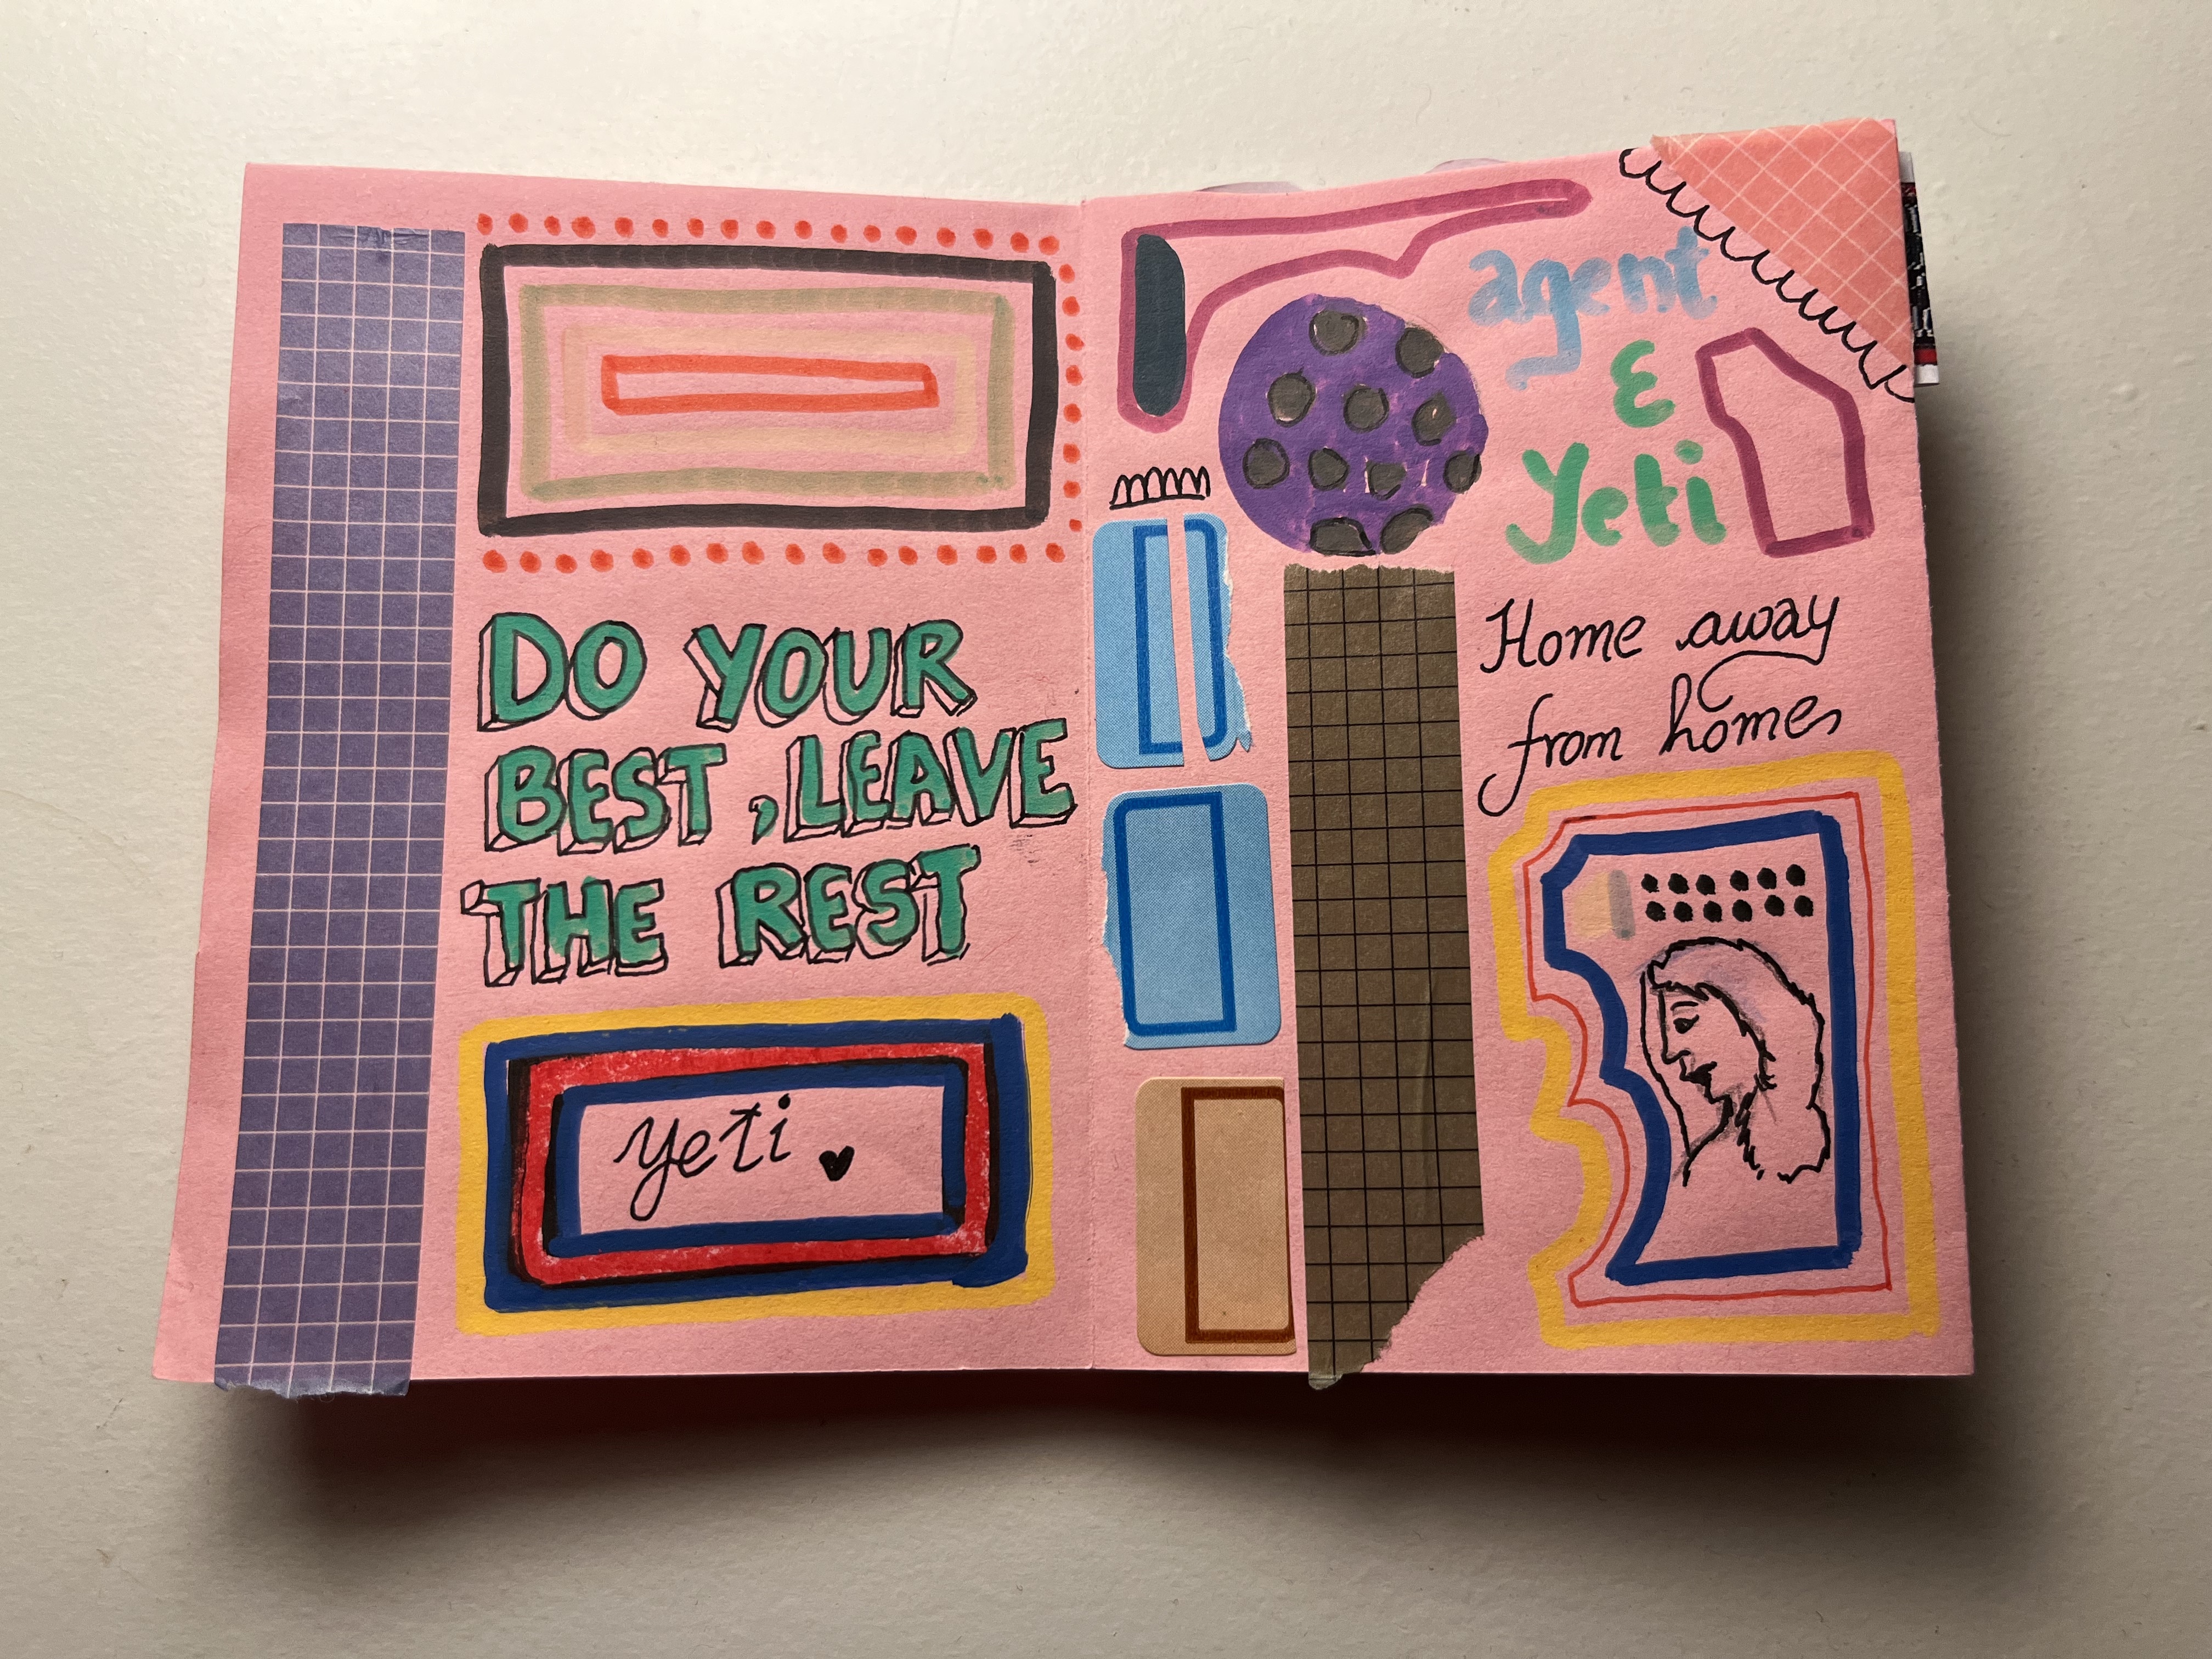 DO YOUR
BEST, LEAVE
THE REST
yeti
agent
&
Yeti
Home away
from homes